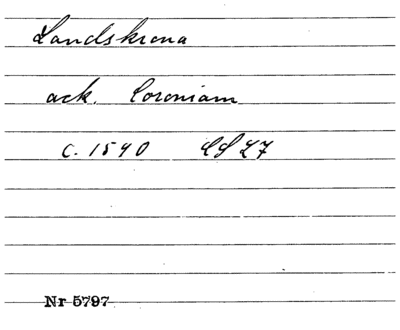 Landskrona
ack. Coroniam
c. 1540 LS 27
Nr 5797